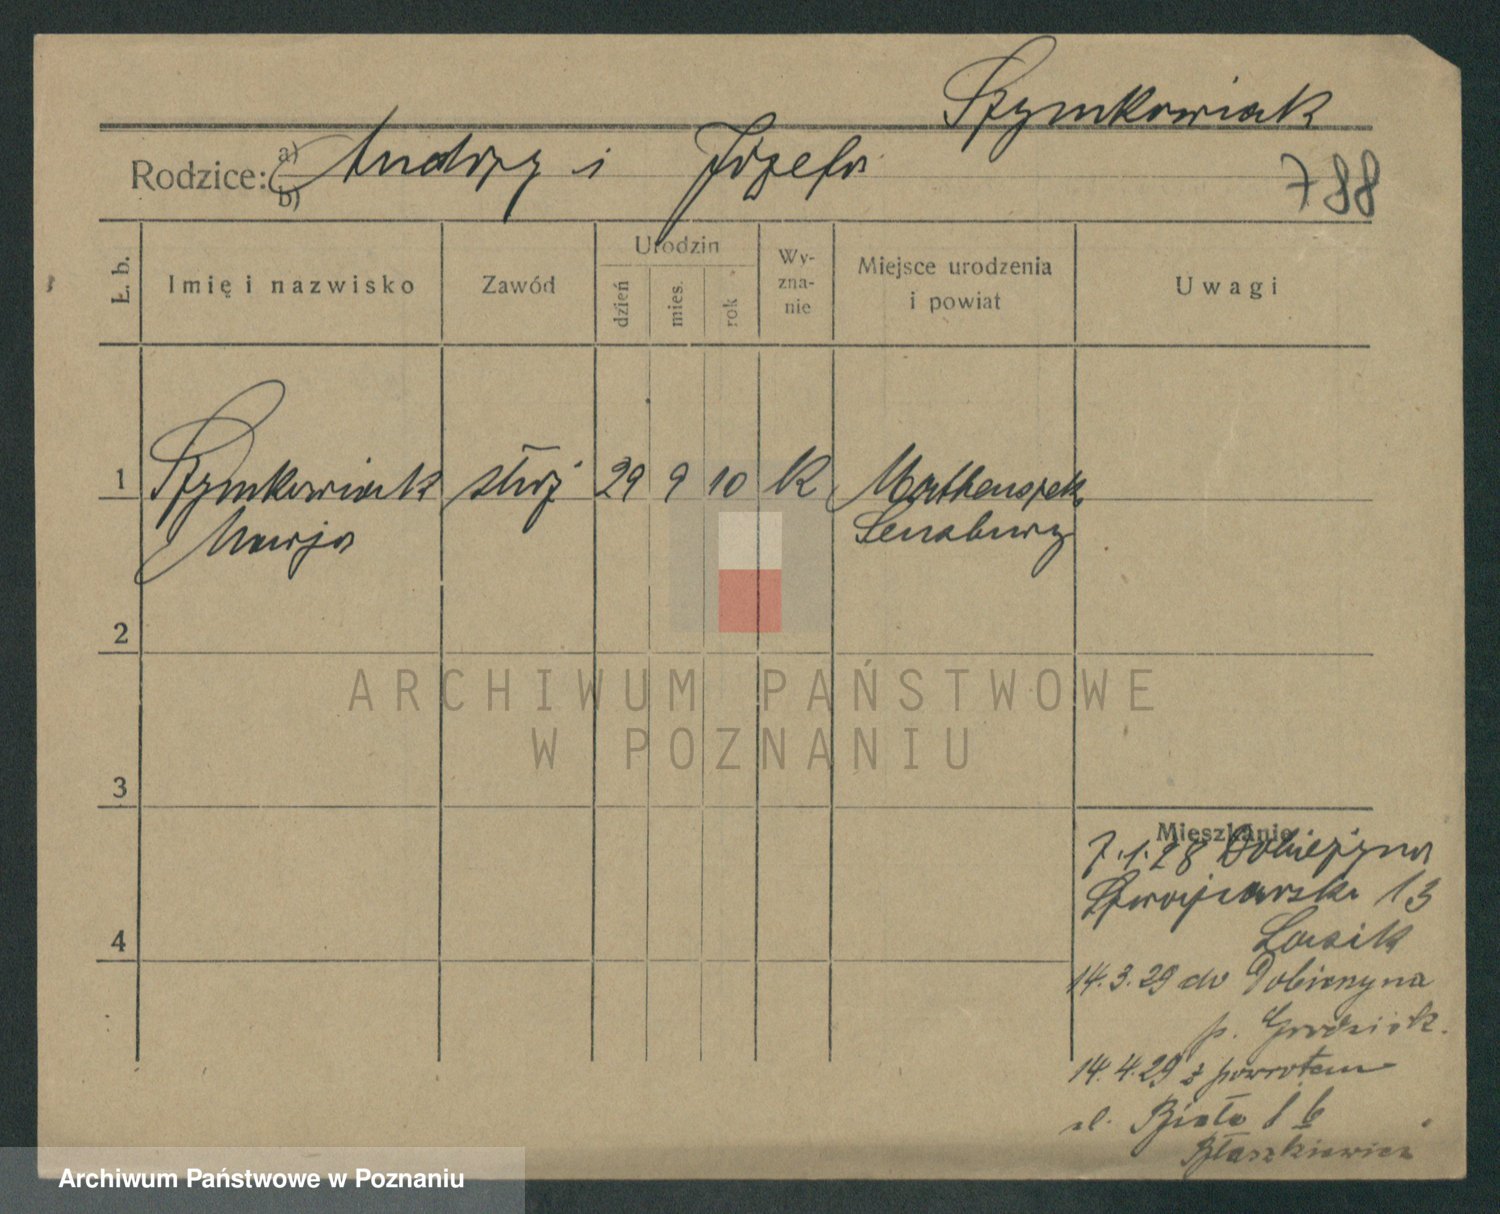 Szymkowiak
Rodzice: a) Andrzej i Józefa
b)
788
Ł. b.
Imię i nazwisko
Zawód
Urodzin
dzień
mies.
rok
Wy-
zna-
nie
Miejsce urodzenia
i powiat
Uwagi
1 Szymkowiak służ 29 9 10 K
Marja Sensburg
2
3
4
Mieszkanie
7.1.28 Dobieżyna
13
14.3.29 do Dobieżyna
p. Grodzisk.
14.4.29 z powrotem
ul. Biała 1 b
Błaszkiewicz
ARCHIWUM PAŃSTWOWE
W POZNANIU
Archiwum Państwowe w Poznaniu